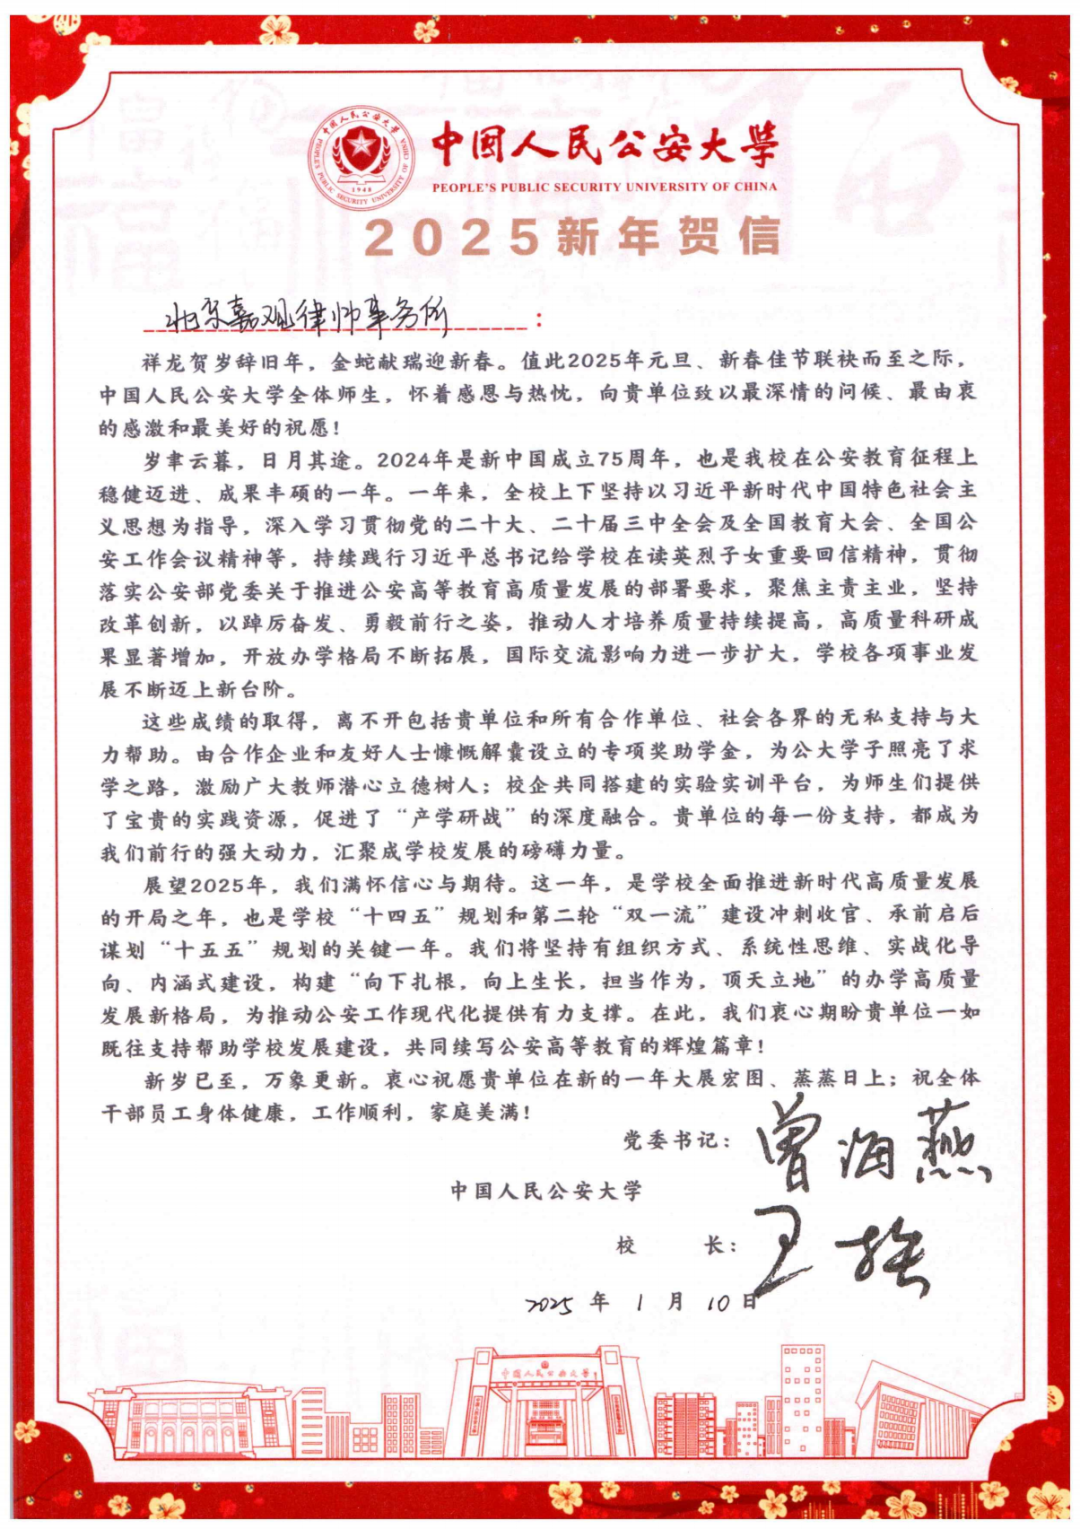 中国人民公安大学
PEOPLE'S PUBLIC SECURITY UNIVERSITY OF CHINA
中国人民公安大学
PEOPLE'S PUBLIC SECURITY UNIVERSITY OF CHINA
1948
2025新年贺信
北京嘉观律师事务所：
祥龙贺岁辞旧年，金蛇献瑞迎新春。值此2025年元旦、新春佳节联袂而至之际，
中国人民公安大学全体师生，怀着感恩与热忱，向贵单位致以最深情的问候、最由衷
的感激和最美好的祝愿！
岁聿云暮，日月其途。2024年是新中国成立75周年，也是我校在公安教育征程上
稳健迈进、成果丰硕的一年。一年来，全校上下坚持以习近平新时代中国特色社会主
义思想为指导，深入学习贯彻党的二十大、二十届三中全会及全国教育大会、全国公
安工作会议精神等，持续践行习近平总书记给学校在读英烈子女重要回信精神，贯彻
落实公安部党委关于推进公安高等教育高质量发展的部署要求，聚焦主责主业，坚持
改革创新，以踔厉奋发、勇毅前行之姿，推动人才培养质量持续提高，高质量科研成
果显著增加，开放办学格局不断拓展，国际交流影响力进一步扩大，学校各项事业发
展不断迈上新台阶。
这些成绩的取得，离不开包括贵单位和所有合作单位、社会各界的无私支持与大
力帮助。由合作企业和友好人士慷慨解囊设立的专项奖助学金，为公大学子照亮了求
学之路，激励广大教师潜心立德树人；校企共同搭建的实验实训平台，为师生们提供
了宝贵的实践资源，促进了“产学研战”的深度融合。贵单位的每一份支持，都成为
我们前行的强大动力，汇聚成学校发展的磅礴力量。
展望2025年，我们满怀信心与期待。这一年，是学校全面推进新时代高质量发展
的开局之年，也是学校“十四五”规划和第二轮“双一流”建设冲刺收官、承前启后
谋划“十五五”规划的关键一年。我们将坚持有组织方式、系统性思维、实战化导
向、内涵式建设，构建“向下扎根，向上生长，担当作为，顶天立地”的办学高质量
发展新格局，为推动公安工作现代化提供有力支撑。在此，我们衷心期盼贵单位一如
既往支持帮助学校发展建设，共同续写公安高等教育的辉煌篇章！
新岁已至，万象更新。衷心祝愿贵单位在新的一年大展宏图、蒸蒸日上；祝全体
干部员工身体健康，工作顺利，家庭美满！
党委书记：曾海燕
中国人民公安大学
校 长：
2025 年 1 月 10 日
中国人民公安大学